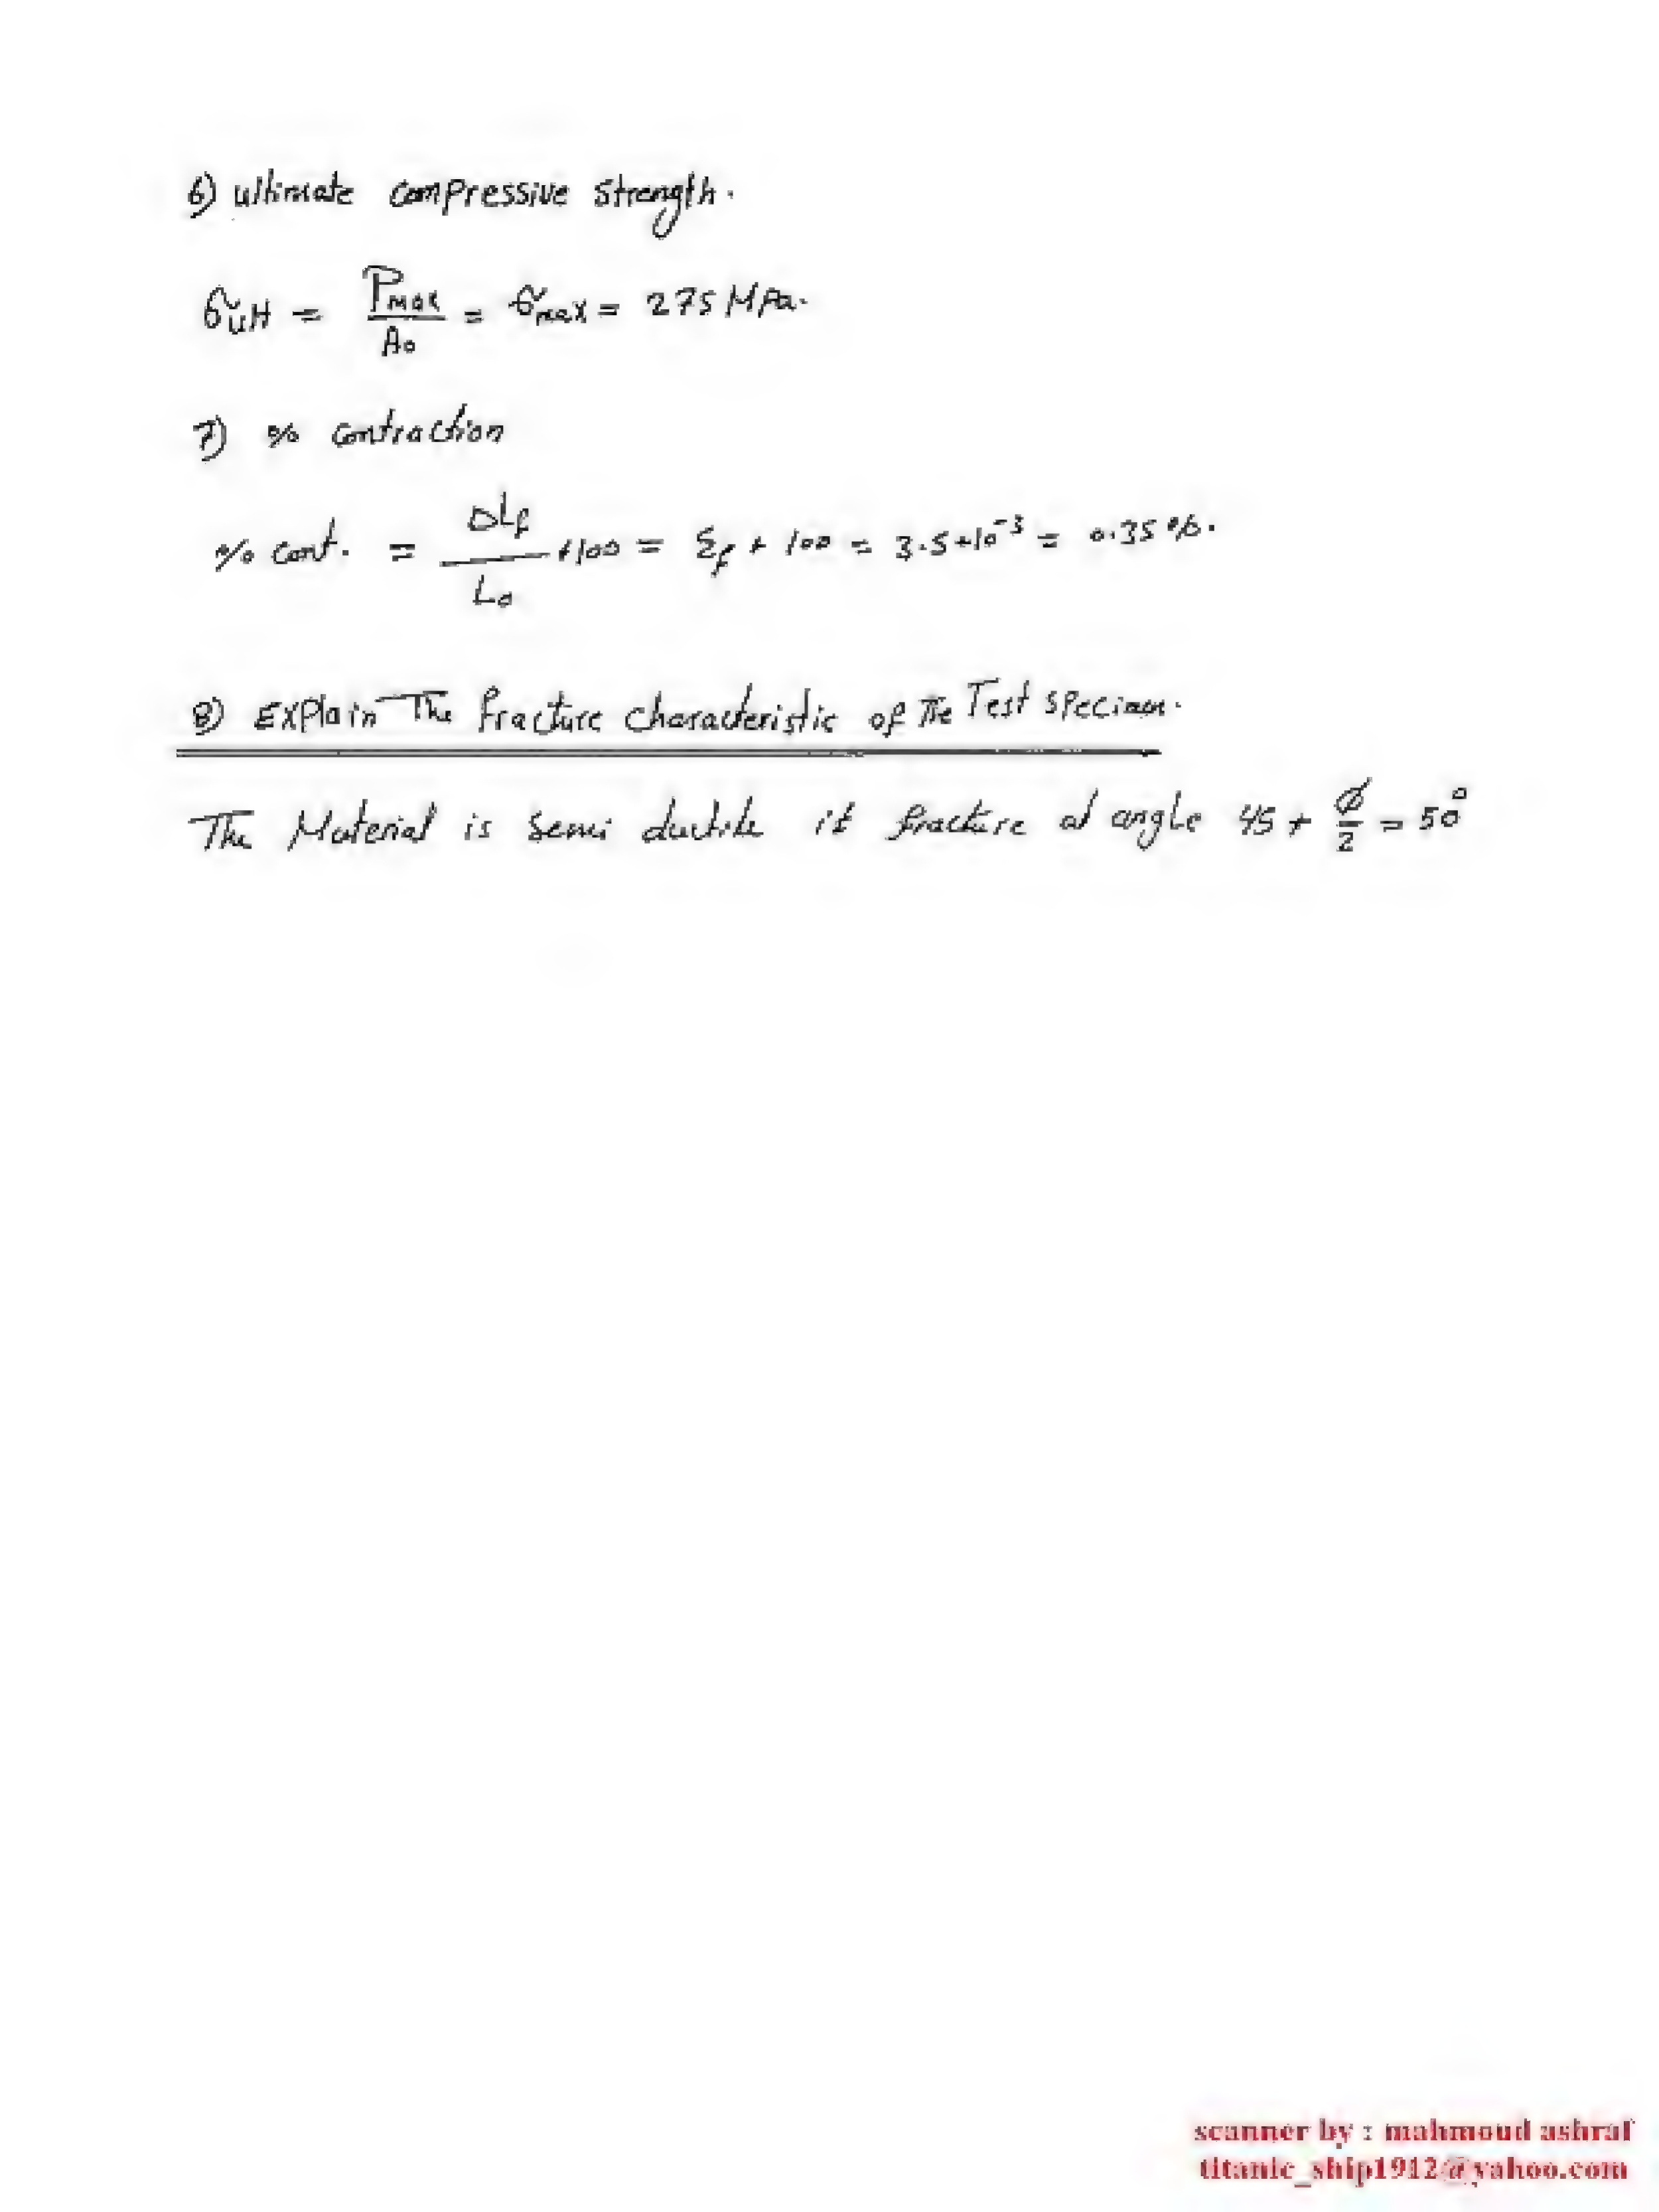 6) ultimate compressive strength.
σult = Pmax / A0 = σmax = 275 MPa.
7) % contraction
% cont. = ΔLf / L0 *100 = εf * 100 = 3.5*10^-3 = 0.35 %.
8) Explain The fracture characteristic of The Test specimen.
The Material is semi ductile it fracture at angle 45 + φ/2 = 50°
scanner by : mahmoud ashraf
titanic_ship1912@yahoo.com